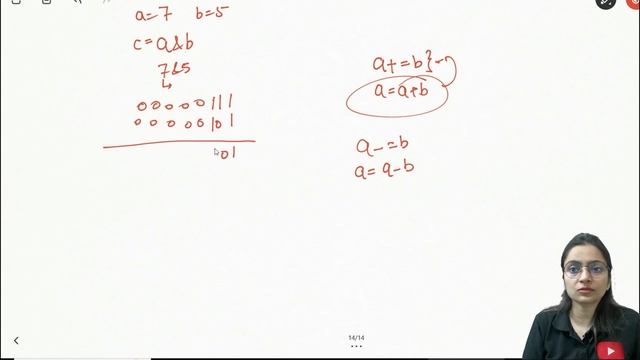 a=7 b=5
c=a&b
7&5
00000111
00000101
01
a+=b}
a=a+b
a-=b
a=a-b
14/14